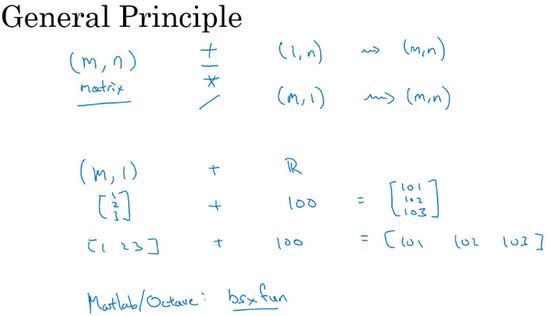 General Principle
(m, n) + (1, n) ⇝ (m, n)
matrix * (m, 1) ⇝ (m, n)
/
(m, 1) + ℝ
[1 2 3] + 100 = [101 102 103]
[1 2 3] + 100 = [101 102 103]
Matlab/Octave: bsxfun